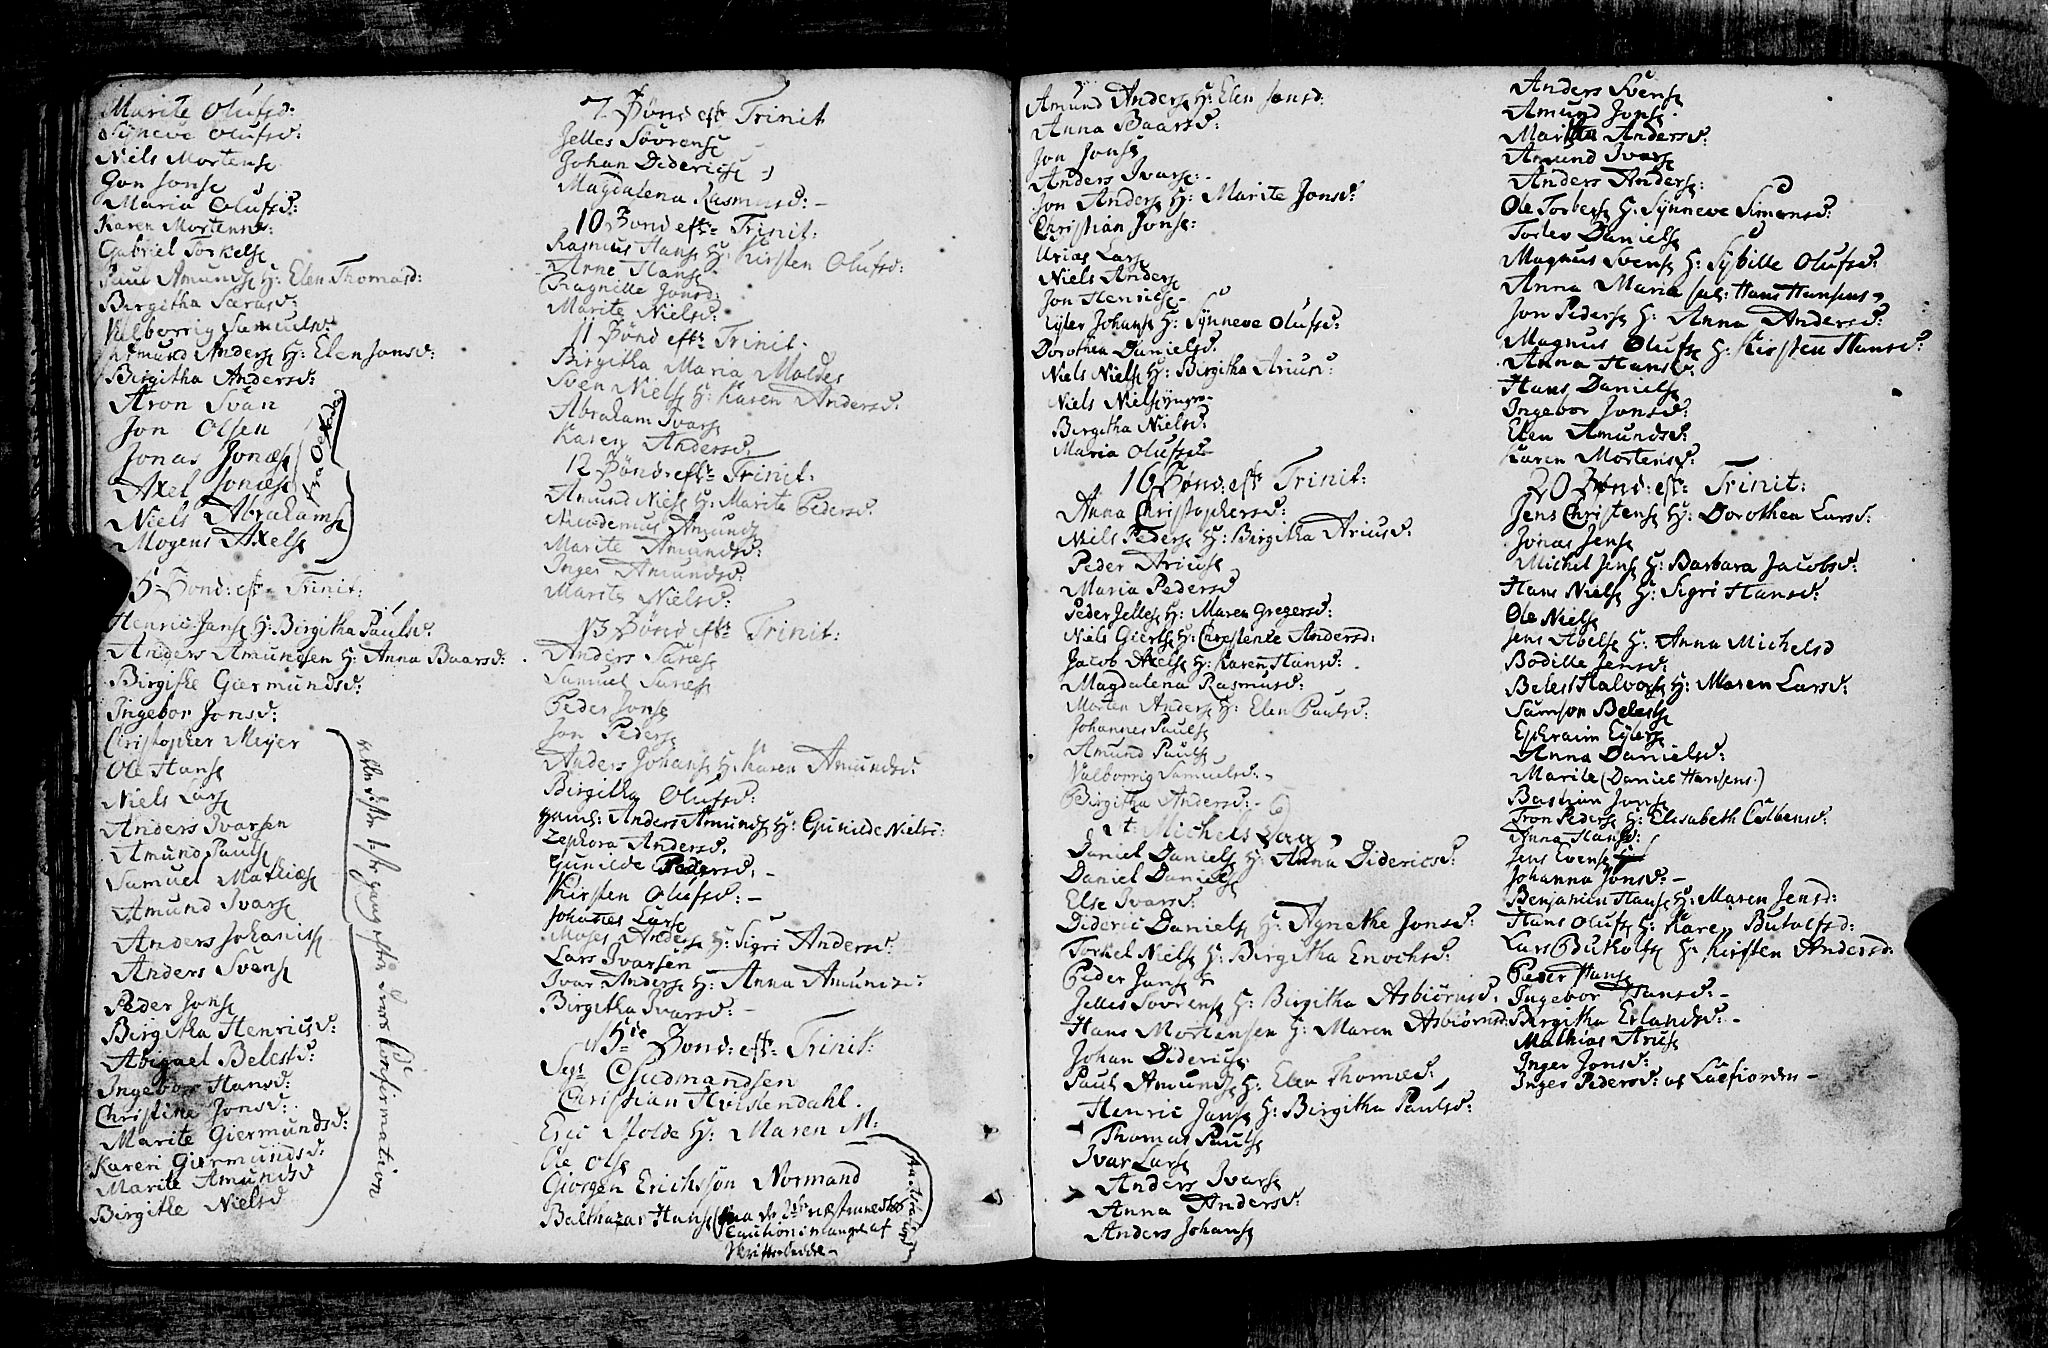 Marite Olufsd:
Synneve Olufsd:
Niels Mortens
Jon Jons
Maria Olufsd:
Karen Mortensd:
Gabriel Torkels
Paul Amunds H: Elen Thomasd:
Birgitha Særasd:
Valborrig Samuelsd:
Amund Anders H: Elen Jonsd:
Birgitha Andersd:
Aron Svan
Jon Olsen
Jonas Jonæs
Axel Jonæs
Niels Abrahams
Mogens Axels
fra
5 Sønd: eft: Trinit:
Henric Jans H: Birgitha Paulsd:
Anders Amundsen H: Anna Baarsd:
Birgithe Giermundsd:
Ingebor Jonsd:
Christopher Meyer
Ole Hans
Niels Lars
Anders Ivarsen
Amund Pauls
Samuel Mathias
Amund Ivars
Anders Johanis
Anders Svens
Peder Jons
Birgitha Henricsd:
Abigael Belestsd:
Ingebor Hansd:
Christine Jonsd:
Marite Giermundsd:
Karen Giermundsd:
Marite Amundsd
Birgithe Nielsd
gang efter deres Confirmation
7 Sønd eft Trinit
Jelles Sövrens
Johan Diderics
Magdalena Rasmusd:
10 Sond eft: Trinit:
Rasmus Hans H: Kirsten Olufsd:
Arne Hans
Ragnille Jonsd:
Marite Nielsd:
11 Sønd eft: Trinit.
Birgitha Maria Moldes
Sven Niels H: Karen Andersd:
Abraham Ivars
Karen Andersd.
12 Sønd: eft: Trinit:
Amund Niels H: Marite Pedersd:
Nicodemus Amunds
Marite Amundsd:
Inger Amundsd:
Marite Nielsd:
13 Sønd eft: Trinit:
Anders Saræs
Samuel Saræs
Peder Jons
Jon Peders
Anders Johans H: Karen Amundsd:
Birgitha Olufsd:
gaml: Anders Amunds H: Gunilde Nielsd:
Zephora Andersd.
Gunilde Pedersd.
Kirsten Olufsd:
Johannes Lars
Moses Anders H: Sigri Andersd:
Lars Ivarsen
Ivar Anders H: Anna Amundsd:
Birgitha Ivarsd:
15de Sond: eft: Trinit:
Segr Gudmandsen
Christian Hvistendahl.
Eric Molde H: Maren M:
Ole Ols
Giorgen Erichssøn Normand
Balthazar Hans
Amund Anders H: Elen Jonsd:
Anna Baarsd:
Jon Jons
Anders Ivars:
Jon Anders H: Marite Jonsd:
Christian Jons:
Urias Lars
Niels Anders
Jon Henrics
Eyler Johans H: Synneve Olufsd:
Dorothea Danielsd.
Niels Niels H: Birgitha Ariusd:
Niels Niels yngre
Birgitha Nielsd:
Maria Olufsd
16 Sønd: eft Trinit:
Anna Christophersd:
Niels Peders H: Birgitha Ariusd:
Peder Arius
Maria Pedersd
Peder Jelles H: Maren Gregersd:
Niels Gierts H: Chrestente Andersd:
Jacob Axels H: Karen Hansd:
Magdalena Rasmusd:
Morten Anders H: Elen Paulsd:
Johannes Pauls
Amund Pauls
Valborrig Samuelsd:
Birgitha Andersd:
St: Michels Dag
Daniel Daniels H: Anna Didericsd:
Daniel Daniels
Else Ivarsd:
Dideric Daniels H: Agnethe Jonsd:
Torkel Niels H: Birgitha Enochsd:
Peder Jans
Jelles Sovrens H: Birgitha Asbiörnsd.
Hans Mortensen H: Maren Asbiørnsd:
Johan Diderics
Paul Amunds H: Elen Thomæsd:
Henric Jans H: Birgitha Paulsd:
Thomas Pauls
Ivar Lars
Anders Ivars
Anna Andersd:
Anders Johans
Anders Svens
Amund Jons
Marithe Andersd:
Amund Ivars
Anders Anders:
Ole Torbers H: Synneve Simensd:
Tosten Daniels
Magnus Svens H: Sybille Olufsd:
Anna Maria sal: Hans Hansens
Jon Peders H: Anna Andersd:
Magnus Olufs H: Kirsten Hansd:
Anna Hansd.
Hans Daniels
Ingebor Jonsd:
Elen Amundsd:
Karen Mortensd:
20 Sønd: eft: Trinit:
Jens Christens H: Dorothea Larsd:
Jonas Jens
Michel Jens H: Barbara Jacobsd:
Hans Niels H: Sigri Hansd:
Ole Niels
Jens Abels H: Anna Michelsd
Bodille Jensd:
Belest Halvors H: Maren Larsd:
Samson Belests
Ephraim Eylers
Anna Danielsd:
Marite (Daniel Hansens.)
Bastian Jons
Tron Peders H: Elisabeth Colbensd:
Anna Hansd:
Jens Evens
Johanna Jonsd:
Benjamin Hans H: Maren Jensd:
Hans Olufs H: Karen Butolfsd:
Lars Butholfs H: Kirsten Andersd:
Peder Hans
Ingebor Hansd:
Birgitha Erlandsd:
Mathias Arius
Inger Jonsd:
Inger Pedersd: af